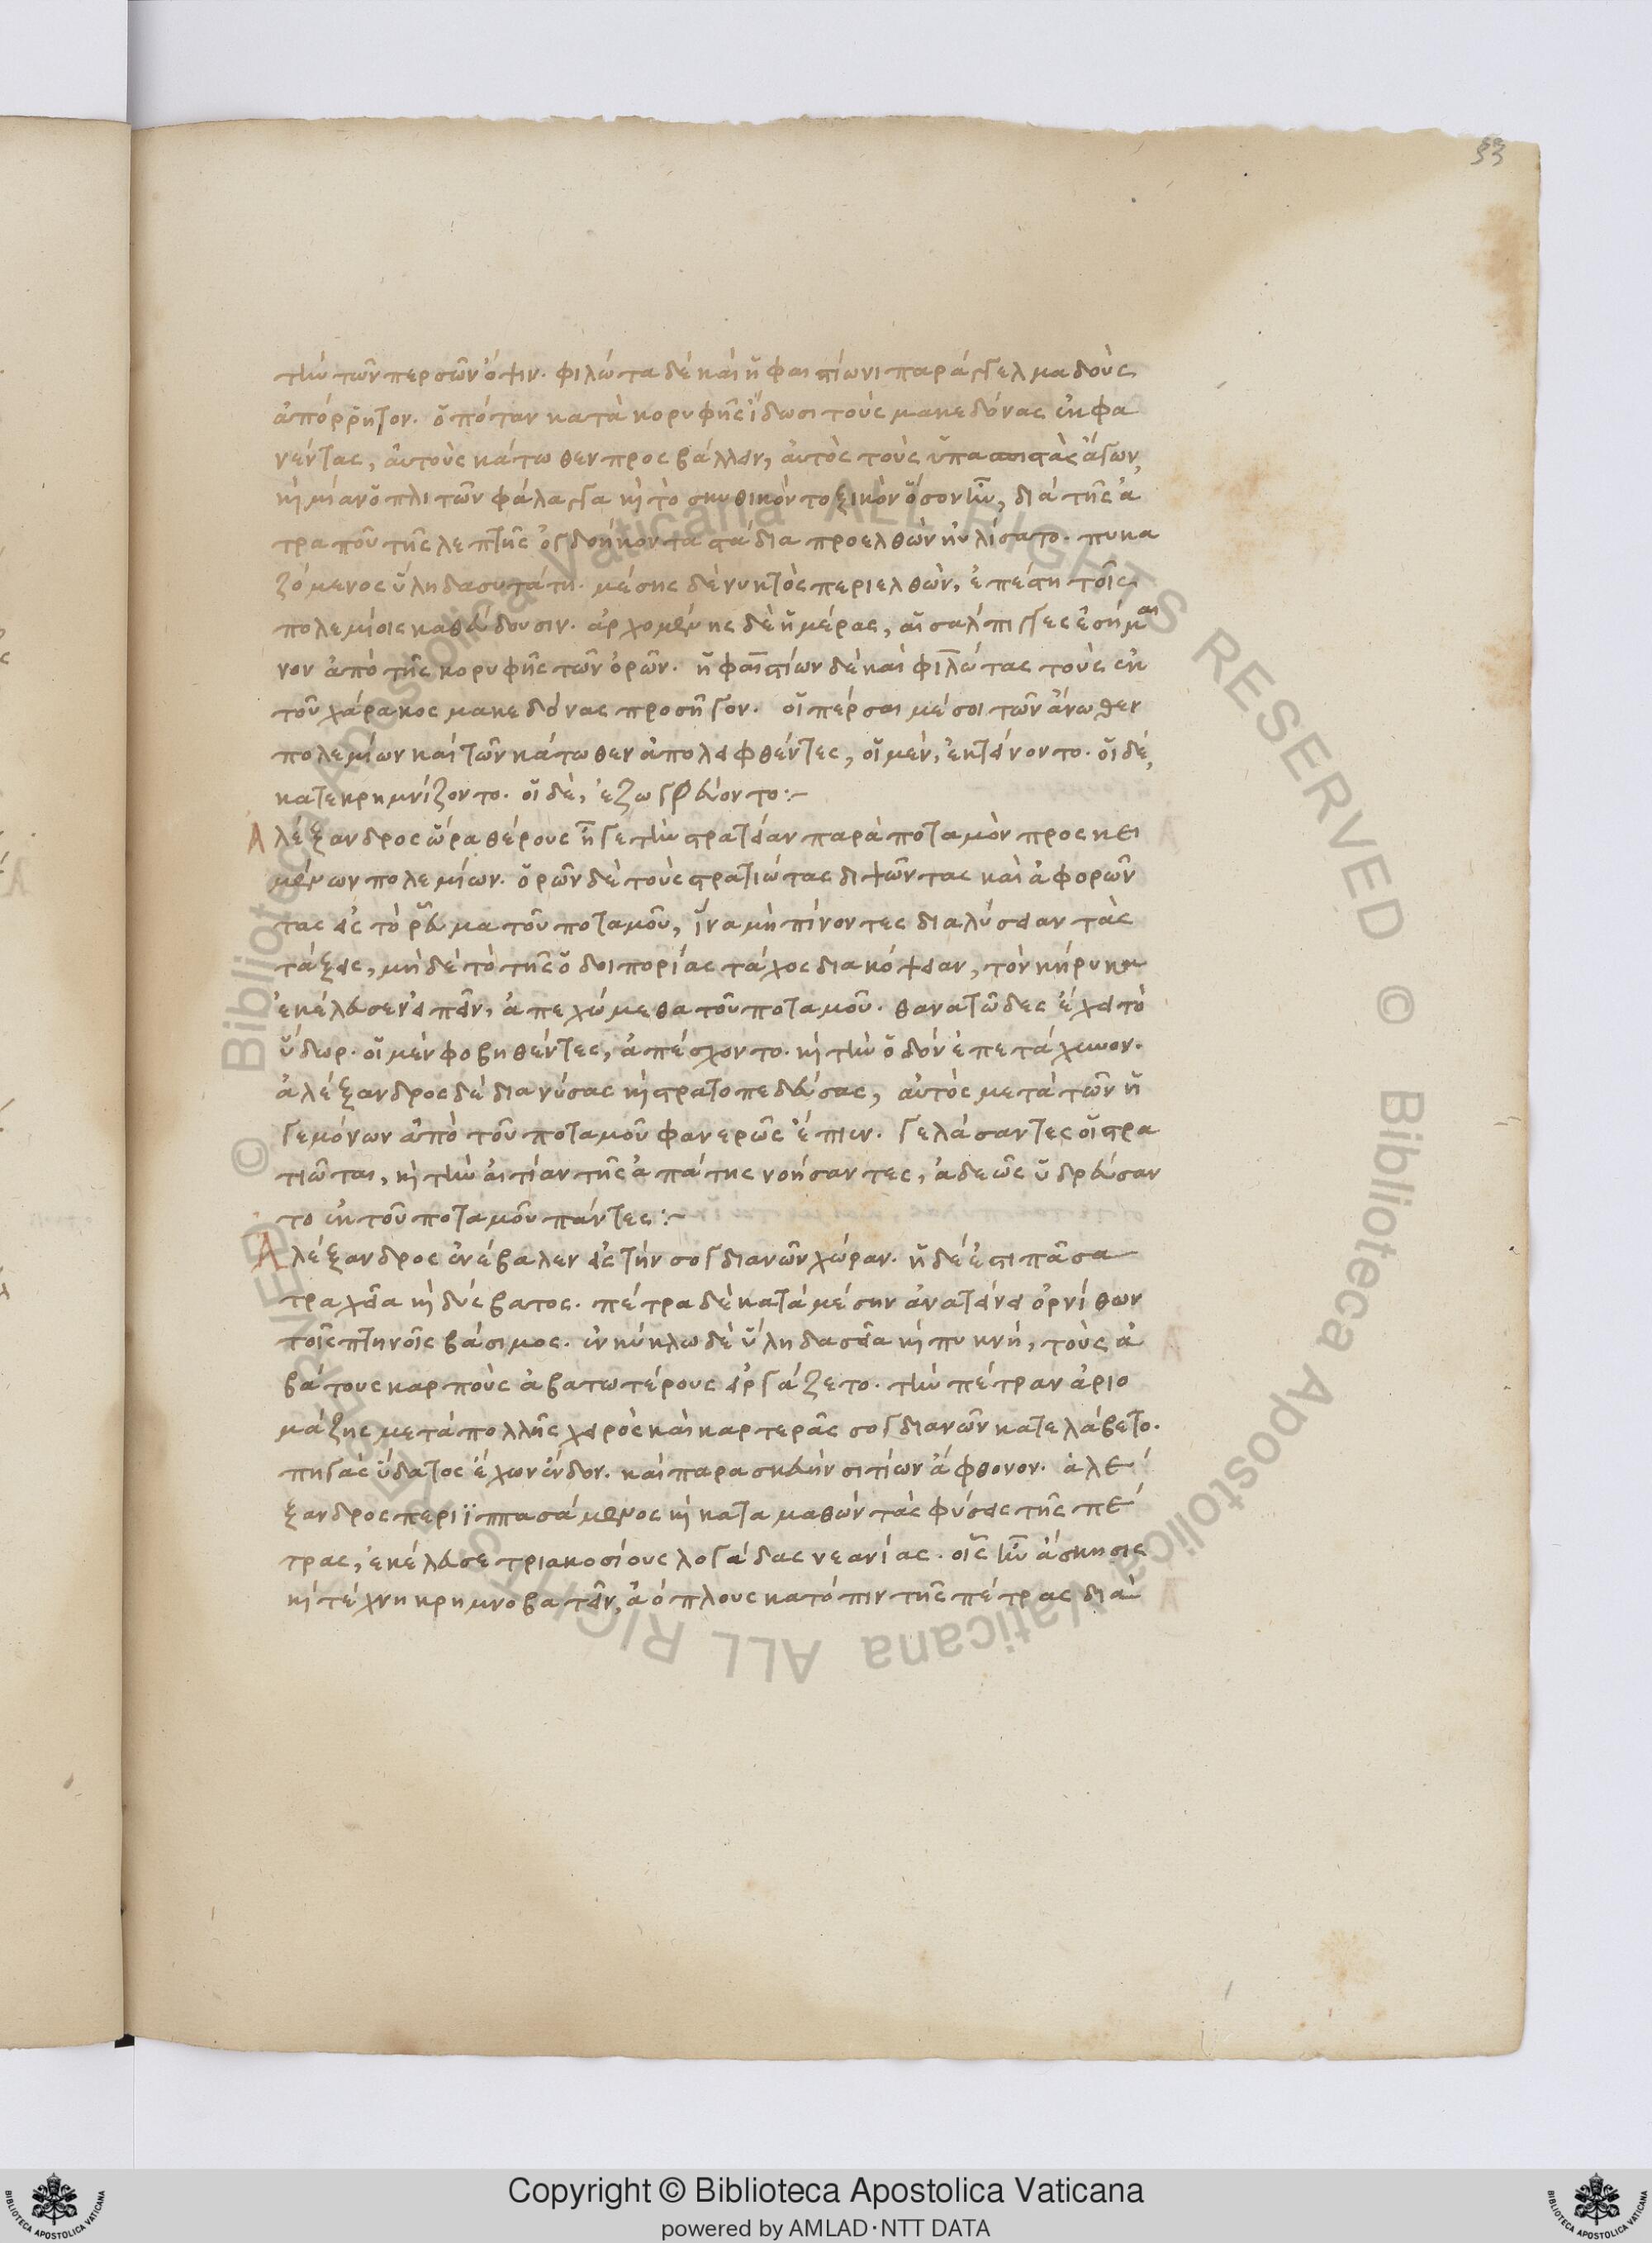 53
τὴν τῶν περσῶν ὄψιν. φιλώτα δὲ καὶ ἡφαιστίωνι παράγγελμα δοὺς
ἀπόρρητον. ὁπόταν κατὰ κορυφῆς ἴδωσι τοὺς μακεδόνας ἐκφα
νέντας, αὐτοὺς κάτωθεν προςβάλλειν, αὐτὸς τοὺς ὑπασπιστὰς ἄγων,
κὴ μίαν ὁπλιτῶν φάλαγγα κὴ τὸ σκυθικὸν τοξικὸν ὅσον ἦν, διὰ τῆς ἀ
τραποῦ τῆς λεπτῆς ὀγδοήκοντα στάδια προελθὼν ηὐλίσατο. πυκα
ζόμενος ὕλη δασυτάτη. μέσης δὲ νυκτὸς περιελθὼν, ἐπέστη τοῖς
πολεμίοις καθεύδουσιν. ἀρχομένης δὲ ἡμέρας, αἱ σάλπιγγες ἐσήμαι
νον ἀπὸ τῆς κορυφῆς τῶν ὀρῶν. ἡφαιστίων δὲ καὶ φιλώτας τοὺς ἐκ
τοῦ χάρακος μακεδόνας προσῆγον. οἱ πέρσαι μέσοι τῶν ἄνωθεν
πολεμίων καὶ τῶν κάτωθεν ἀπολειφθέντες, οἱ μὲν, ἐκτείνοντο. οἱ δέ,
κατεκρημνίζοντο. οἱ δὲ, ἐζωγρεύοντο:~
Ἀλέξανδρος ὥρα θέρους ἦγε τὴν στρατείαν παρὰ ποταμὸν προςκει
μένων πολεμίων. ὁρῶν δὲ τοὺς στρατιώτας διψῶντας καὶ ἀφορῶν
τας εἰς τὸ ῥεῦμα τοῦ ποταμοῦ, ἵνα μὴ πίνοντες διαλύσειαν τὰς
τάξεις, μὴ δὲ τὸ τῆς ὁδοιπορίας τάχος διακόψειαν, τὸν κήρυκα
ἐκέλευσεν εἰπεῖν, ἀπεχώμεθα τοῦ ποταμοῦ. θανατῶδες ἔχει τὸ
ὕδωρ. οἱ μὲν φοβηθέντες, ἀπέσχοντο. κὴ τὴν ὁδὸν ἐπετάχυνον.
ἀλέξανδρος δὲ διανύσας κὴ στρατοπεδεύσας, αὐτὸς μετὰ τῶν ἡ
γεμόνων ἀπὸ τοῦ ποταμοῦ φανερῶς ἔπιν. γελάσαντες οἱ στρα
τιῶται, κὴ τὴν αἰτίαν τῆς ἀπάτης νοήσαντες, ἀδεῶς ὑδρεύσαν
το ἐκ τοῦ ποταμοῦ πάντες:~
Ἀλέξανδρος ἐνέβαλεν εἰς τὴν σογδιανῶν χώραν. ἡ δὲ ἐστι πᾶσα
τραχεῖα κὴ δύςβατος. πέτρα δὲ κατὰ μέσην ἀνατείνει ὀρνίθων
τοῖς πτηνοῖς βάσιμος. ἐν κύκλω δὲ ὕλη δασεῖα κὴ πυκνὴ, τοὺς ἀ
βάτους καρποὺς ἀβατωτέρους εἰργάζετο. τὴν πέτραν ἀριο
μάζης μετὰ πολλῆς χειρὸς καὶ καρτερᾶς σογδιανῶν κατελάβετο.
πηγὰς ὕδατος ἔχων ἔνδον. καὶ παρασκευὴν σιτίων ἄφθονον. ἀλέ
ξανδρος περιϊππασάμενος κὴ καταμαθὼν τὰς φύσεις τῆς πέ
τρας, ἐκέλευσε τριακοσίους λογάδας νεανίας. οἷς ἦν ἄσκησις
κὴ τέχνη κρημνοβατεῖν, ἀόπλους κατόπιν τῆς πέτρας διὰ
© Biblioteca Apostolica Vaticana ALL RIGHTS RESERVED © Biblioteca Apostolica Vaticana ALL RIGHTS RESERVED
Copyright © Biblioteca Apostolica Vaticana
powered by AMLAD·NTT DATA
BIBLIOTECA APOSTOLICA VATICANA
BIBLIOTECA APOSTOLICA VATICANA